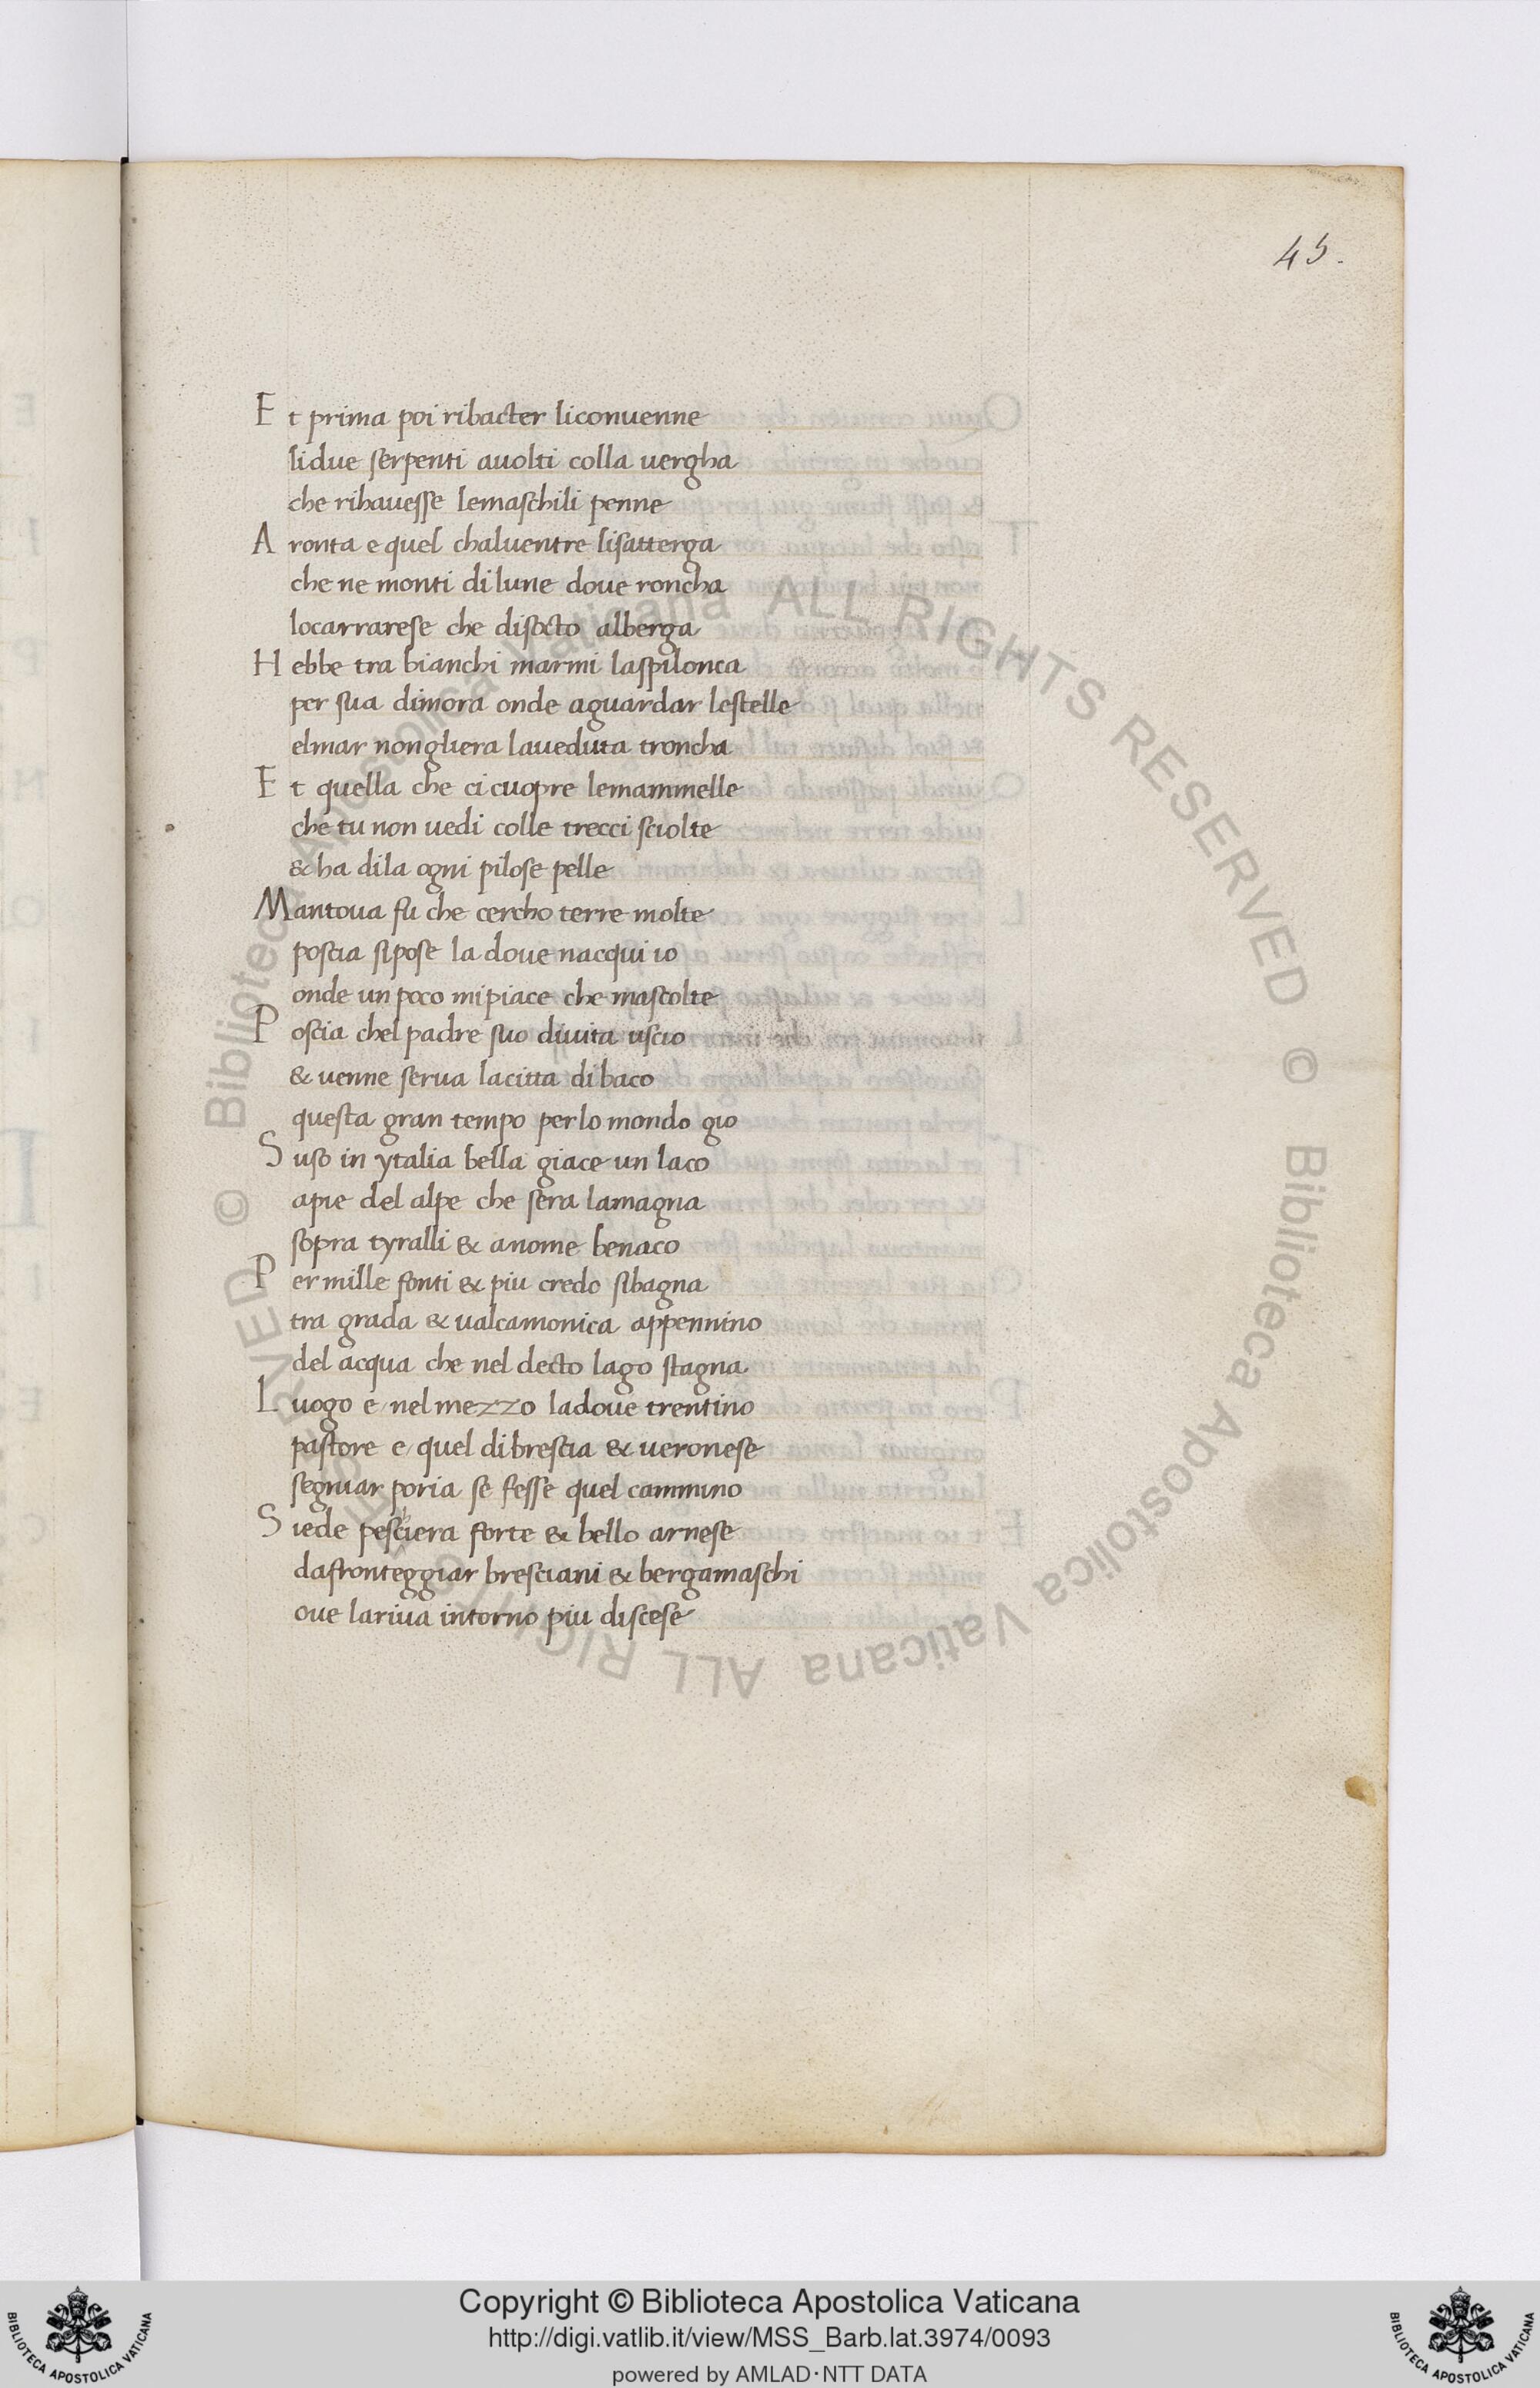 45.
Et prima poi ribacter liconuenne
lidue serpenti auolti colla uergha
che rihauesse lemaschili penne
Aronta e quel chaluentre lisatterga
che ne monti dilune doue roncha
locarrarese che disocto alberga
Hebbe tra bianchi marmi laspilonca
per sua dimora onde aguardar lestelle
elmar nongliera laueduta troncha
Et quella che ci cuopre lemammelle
che tu non uedi colle trecci sciolte
& ha dila ogni pilose pelle
Mantoua fu che cercho terre molte
poscia sipose la doue nacqui io
onde un poco mipiace che mascolte
Poscia chel padre suo diuita uscio
& uenne serua lacitta dibaco
questa gran tempo perlo mondo gio
Suso in ytalia bella giace un laco
apie del alpe che sera lamagna
sopra tyralli & anome benaco
Per mille fonti & piu credo sibagna
tra grada & ualcamonica appennino
del acqua che nel decto lago stagna
Luogo e nel mezzo ladoue trentino
pastore e quel dibrescia & ueronese
segniar poria se fesse quel cammino
Siede pesciera forte & bello arnese
dafronteggiar bresciani & bergamaschi
oue lariua intorno piu discese
© Biblioteca Apostolica Vaticana ALL RIGHTS RESERVED © Biblioteca Apostolica Vaticana ALL RIGHTS RESERVED
Copyright © Biblioteca Apostolica Vaticana
http://digi.vatlib.it/view/MSS_Barb.lat.3974/0093
powered by AMLAD·NTT DATA
BIBLIOTECA APOSTOLICA VATICANA
BIBLIOTECA APOSTOLICA VATICANA